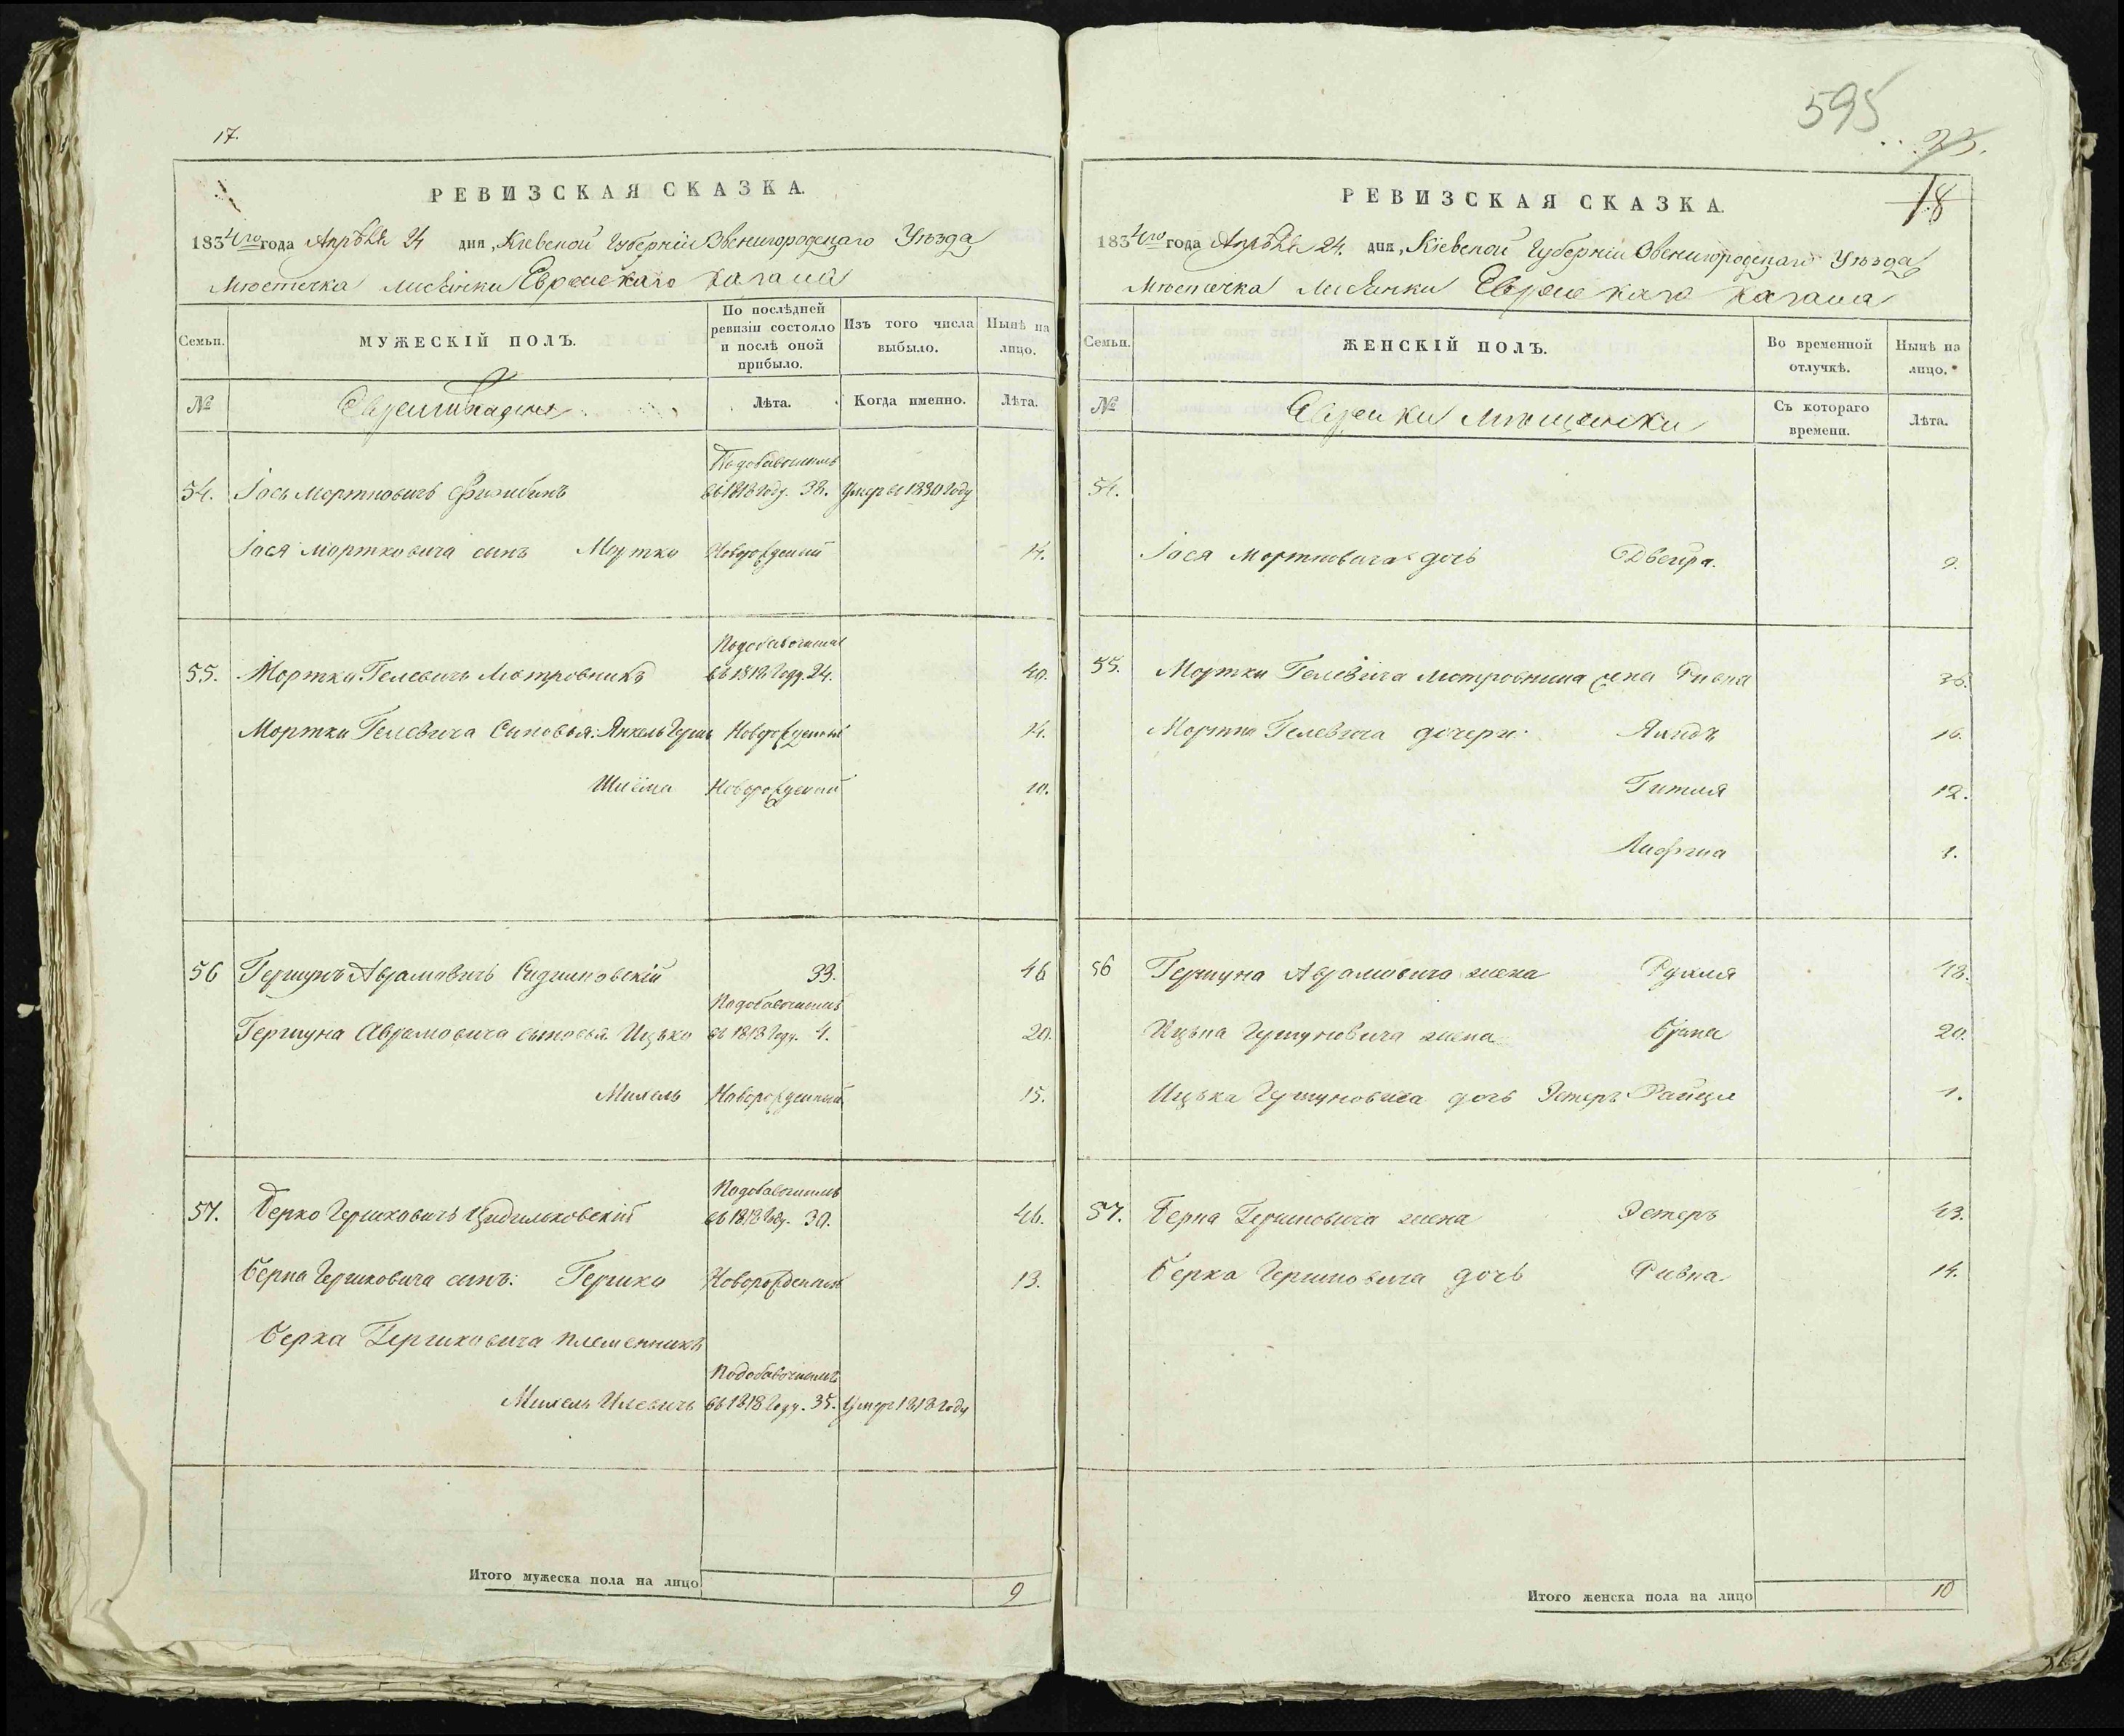 17.
РЕВИЗСКАЯ СКАЗКА.
1834го года Апрѣля 24 дня, Кіевской Губерніи Звенигородскаго Уѣзда
Мѣстечка Лисянки Еврейскаго Кагала
Семьи.
МУЖЕСКІЙ ПОЛЪ.
По послѣдней ревизіи состояло и послѣ оной прибыло.
Изъ того числа выбыло.
Нынѣ на лицо.
№
Евреи
Лѣта.
Когда именно.
Лѣта.
Подобавочнымъ
54. Іось Мортковичъ въ 1818 году. 32. Умеръ въ 1830 году
Іося Мортковича сынъ Мортко Новорожденный 14.
Подобавочнымъ
55. Мортко Гелевичъ Мотровникъ въ 1818 году. 24. 40.
Мортки Гелевича Сыновья: Янкель Герш Новорожденный 14.
Шлёма Новорожденный 10.
56 Гершунъ Аврамовичъ 33. 46
Подобавочнымъ
Гершуна Аврамовича сыновья Ицько въ 1818 году. 4. 20.
Михель Новорожденный 15.
Подобавочнымъ
57. Берко Гершковичъ Цидильковскій въ 1818 году. 30. 46.
Берка Гершковича сынъ: Гершко Новорожденный 13.
Берка Гершковича племенникъ
Подобавочнымъ
Михель Илевичъ въ 1818 году. 35. Умеръ 1818 году
Итого мужеска пола на лицо 9
595
18
РЕВИЗСКАЯ СКАЗКА.
1834го года Апрѣля 24. дня, Кіевской Губерніи Звенигородскаго Уѣзда
Мѣстечка Лисянки Еврейскаго Кагала
Семьи.
ЖЕНСКІЙ ПОЛЪ.
Во временной отлучкѣ.
Нынѣ на лицо.
№
Еврейки Мѣщанки
Съ котораго времени.
Лѣта.
54.
Іося Мортковича дочь Двейра. 9.
55. Мортки Гелевича Мотровника жена Ривка 36.
Мортки Гелевича дочери: 16.
Гитля 12.
1.
56 Гершуна Аврамовича жена Рухля 48.
Ицька Гершуновича жена 20.
Ицька Гершуновича дочь Эстеръ Райця 1.
57. Берка Гершковича жена Эстеръ 43.
Берка Гершковича дочь Ривка 14.
Итого женска пола на лицо 10